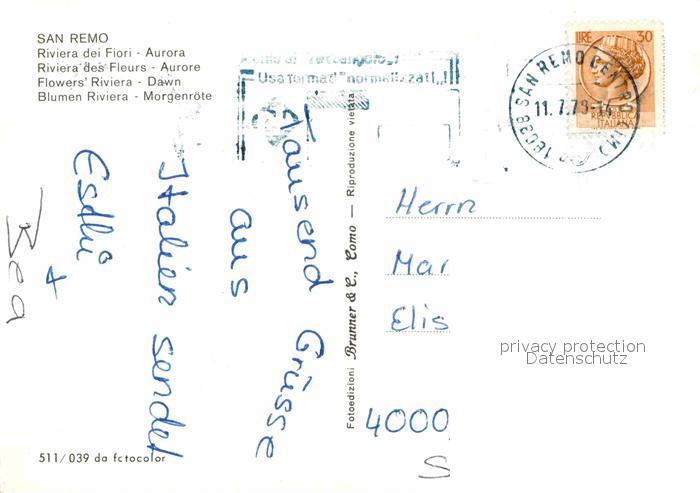 SAN REMO
Riviera dei Fiori - Aurora
Riviera des Fleurs - Aurore
Flowers' Riviera - Dawn
Blumen Riviera - Morgenröte
"rettangolo„!
Usa formati "normalizzati„!
LIRE 30
REPVBBLICA
ITALIANA
18038 SAN REMO CENTRO (IM)
11.7.79-14
Tausend Grüsse
aus
Italien sendet
+
Bea
Fotoedizioni Brunner & C., Como — Riproduzione vietata
Herrn
Mar
Elis
4000
S
privacy protection
Datenschutz
511/039 da fotocolor